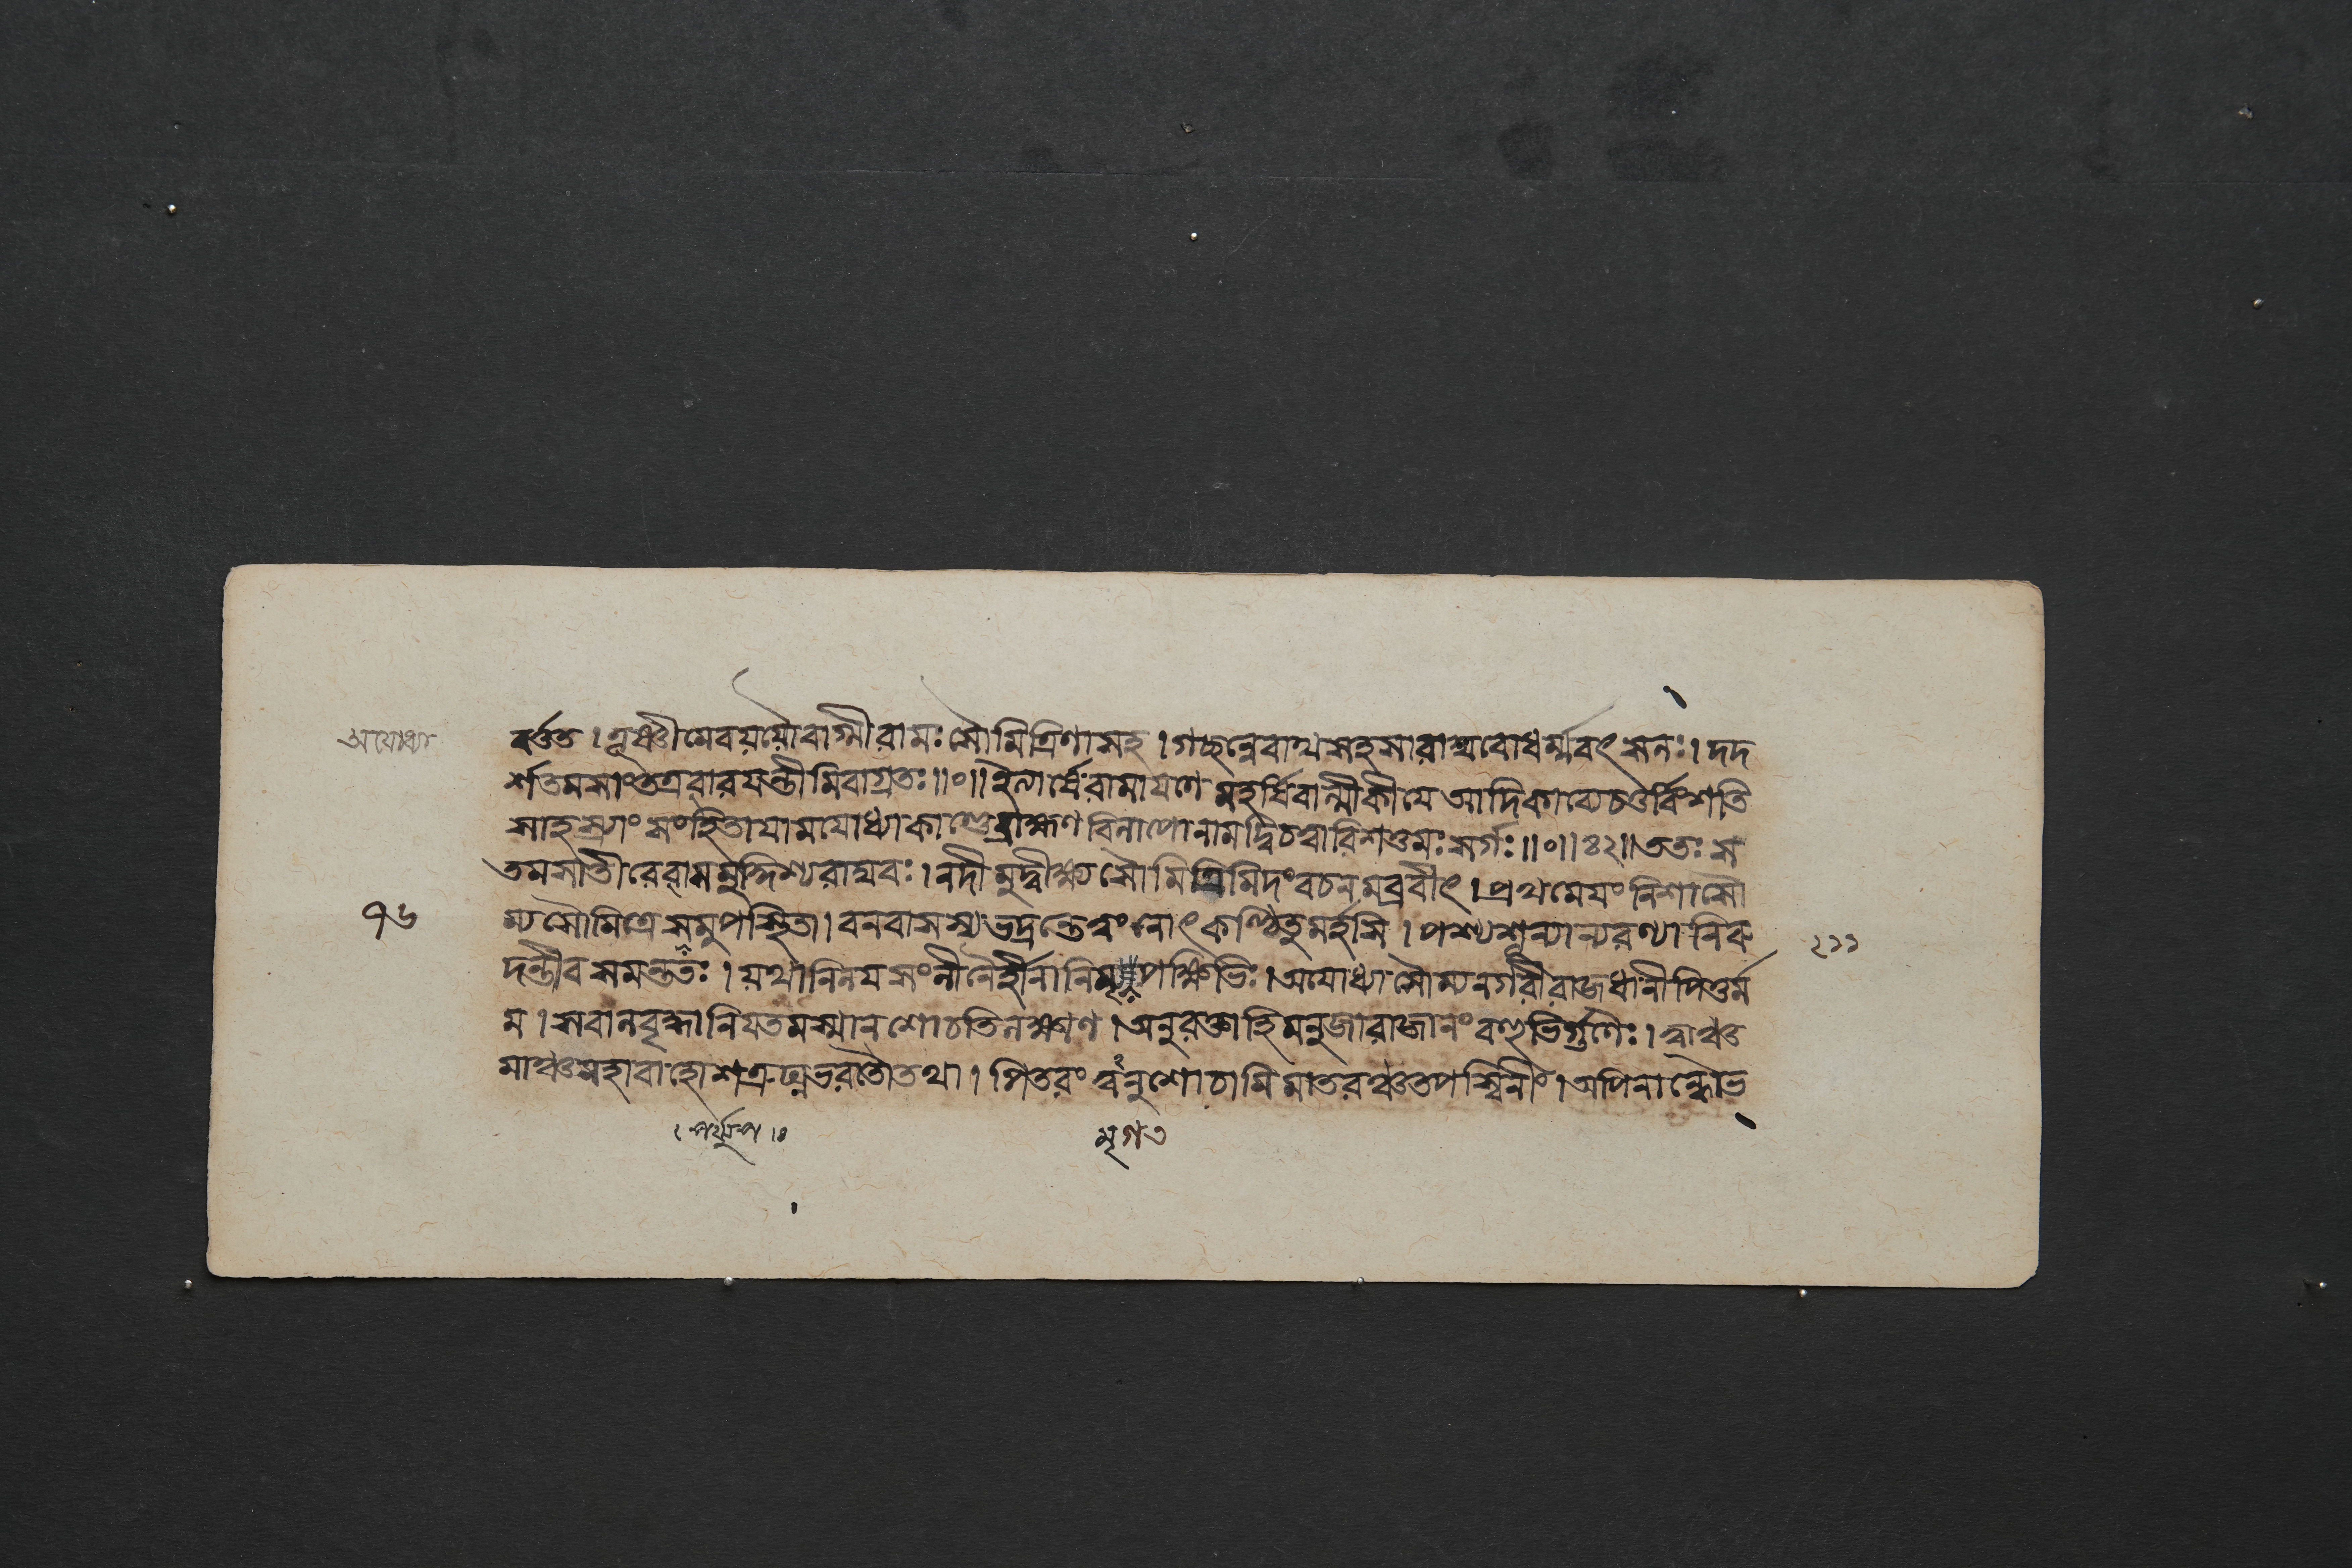 অযোধ্যা
বর্ত্তত । তূষ্ণীমেবযয়ৌবাগ্মীরামঃসৌমিত্রিণাসহ । গচ্ছন্নেবাথসহসারাঘবোধর্ম্মবৎসলঃ । দদ
র্শতমসাংতত্রবারযন্তীমিবাগ্রতঃ ॥০॥ ইত্যার্ষেরামাযণেমহর্ষিবাল্মীকীযেআদিকাব্যেচতুর্ব্বিংশতি
সাহস্র্যাংসংহিতাযামযোধ্যাকাণ্ডেব্রাহ্মণবিলাপোনামদ্বিচত্বারিংশত্তমঃসর্গঃ ॥০॥ ৪২॥ ততঃস
তমসাতীরেরামমুদ্দিশ্যরাঘবঃ । নদীমুদ্বীক্ষ্যসৌমিত্রিমিদংবচনমব্রবীৎ । প্রথমেযংনিশাসৌ
৭৬
ম্যসৌমিত্রেসমুপস্থিতা । বনবাসস্যভদ্রন্তেত্বংনোৎকণ্ঠিতুমর্হসি । পশ্যশূন্যান্যরণ্যানিরু
২১১
দন্তীবসমন্ততঃ । যথানিলযসংলীনৈর্হীনানিমৃগপক্ষিভিঃ । অযোধ্যাসৌম্যনগরীরাজধানীপিতুর্ম্ম
ম । সবালবৃদ্ধানিযতমস্মানশোচতিলক্ষ্মণ । অনুরক্তাহিমনুজারাজানংবহুভির্গুণৈঃ । ত্বাঞ্চ
মাঞ্চমহাবাহোশত্রুঘ্নভরতৌতথা । পিতরংত্বনুশোচামিমাতরঞ্চতপস্বিনীং । অপিনান্ধৌভ
মৃগ৩